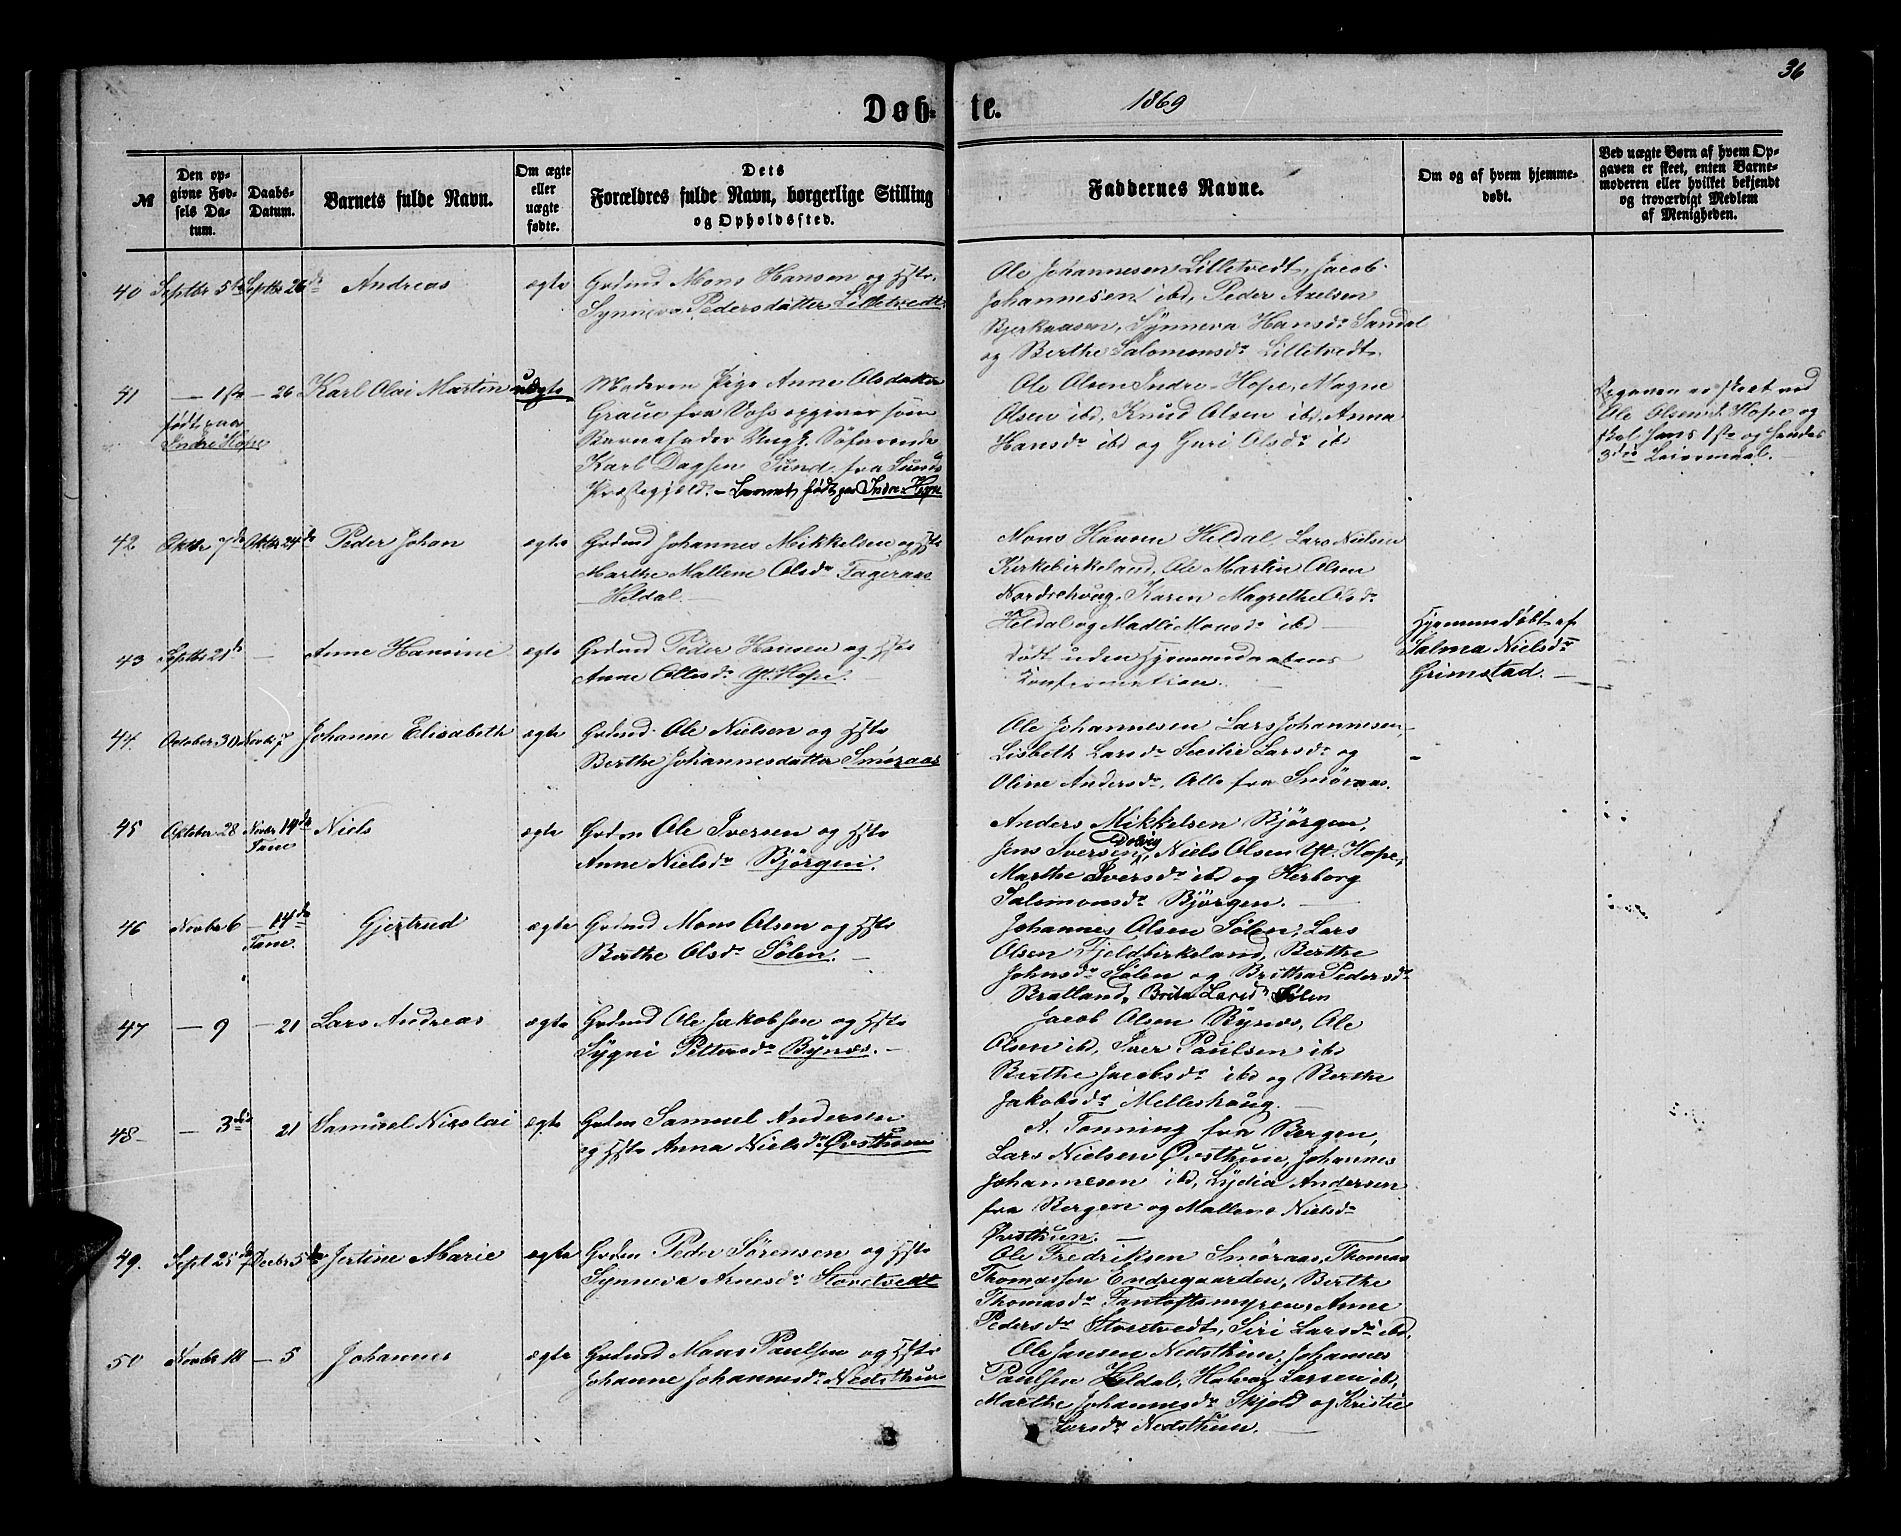 36
Døb- te.
1869
№
Den op-
givne Fød-
sels Da-
tum.
Daabs-
Datum.
Barnets fulde Navn.
Om ægte
eller
uægte
fødte.
Dets
Forældres fulde Navn, borgerlige Stilling
og Opholdssted.
Faddernes Navne.
Om og af hvem hjemme-
døbt.
Ved uægte Børn af hvem Op-
gaven er skeet, enten Barne-
moderen eller hvilket bekjendt
og troværdigt Medlem
af Menigheden.
40 Septbr 5te Septbr 26de Andreas ægte Grdmd Mons Hansen og Hstr.
Synneva Pedersdatter Lilletvedt
Ole Johannesen Lilletvedt, Jacob
Johannesen ibd, Peder Axelsen
Bjerknæsen, Synneva Hansdr Sandal
og Berthe Salomonsdr Lilletvedt.
41 — 1ste — 26 Karl Olai Martin uægte Moderen Pige Anne Olsdatter
født paa
Indre Hope
Graue fra Voss opgiver som
Barnefader Ungk. Søfarende
Karl Dagsen Sund fra Sunds
Præstegjeld. — Barnet født paa Indre-Hope
Ole Olsen Indre-Hope, Magne
Olsen ibd, Knud Olsen ibd, Anna
Hansdr ibd og Guri Olsdr ibd
Opgaven er skeet ved
Ole Olsen I. Hope og
skal hans 1ste og hendes
3die Leiermaal.
42 Oktbr 7de Oktbr 24de Peder Johan ægte Grdmd Johannes Mikkelsen og Hstr
Marthe Mallene Olsdr Fageraas
Heldal.
Mons Hansen Heldal, Lars Nielsen
Kirkebirkeland, Ole Martin Olsen
Nordrehoug, Karen Magrethe Olsdr
Heldal og Madli Monsdr ibd
43 Septbr 21de — Anne Hansine ægte Grdmd Peder Hansen og Hstr
Anne Ollesdr Yt. Hope.
Død uden Hjemmedaabens
Konfirmation.
Hjemmedøbt af
Salmea Nielsdr
Grimstad.
44. October 30 Novbr 7 Johanne Elisabeth ægte Grdmd Ole Nielsen og Hstr
Berthe Johannesdatter Smøraas
Ole Johannesen Lars Johannesen
Lisbeth Larsdr Secilie Larsdr og
Oline Andersdr, Alle fra Smøraas.
45 Oktober 28 Novbr 14de Niels ægte Grdm Ole Iversen og Hstr
Fane
Anne Nielsdr Bjørgen.
Anders Mikkelsen Bjørgen,
Jens Iversen Dolvig, Niels Olsen Yt. Hope,
Marthe Iversdr ibd og Herborg
Salomonsdr Bjørgen.
46 Novbr 6 — 14de Gjertrud ægte Grdmd Mons Olsen og Hstr
Fane.
Berthe Olsdr Sølen.
Johannes Olsen Sølen, Lars
Olsen Fjeldbirkeland, Berthe
Johnsdr Sølen og Brittha Pedersdr
Bratland, Brita Larsdr Sølen
47 — 9 — 21 Lars Andreas ægte Grdmd Ole Jakobsen og Hstr
Sygni Pettersdr Bynæs.
Jacob Olsen Bynæs, Ole
Olsen ibd, Iver Paulsen ibd
Berthe Jacobsdr ibd og Berthe
Jakobsdr Melleshoug.
48 — 3die 21 Samuel Nicolai ægte Grdm Samuel Andersen
og Hstr Anna Nielsdr Øvsthun
A. Tonning fra Bergen,
Lars Nielsen Øvsthun, Johannes
Johannesen ibd, Lydia Andersen
fra Bergen og Mallene Nielsdr
Øvsthun.
49. Sept 25de Decbr 5te Jertine Marie ægte Grdm Peder Sørensen og Hstr
Synneva Arnesdr Storetvedt
Ole Fredriksen Smøraas, Thomas
Thomassen Endregaarden, Berthe
Thomasdr Fantoftsmyren, Anne
Pedersdr Storetvedt, Siri Larsdr ibd.
50 Novbr 10 — 5 Johannes ægte Grdmd Mons Paulsen og Hstr
Johanne Johannesdr Nedsthun
Ole Jansen Nedsthun, Johannes
Paulsen Heldal, Halvor Larsen ibd,
Marthe Johannesdr Skjold og Kristie
Larsdr Nedsthun.